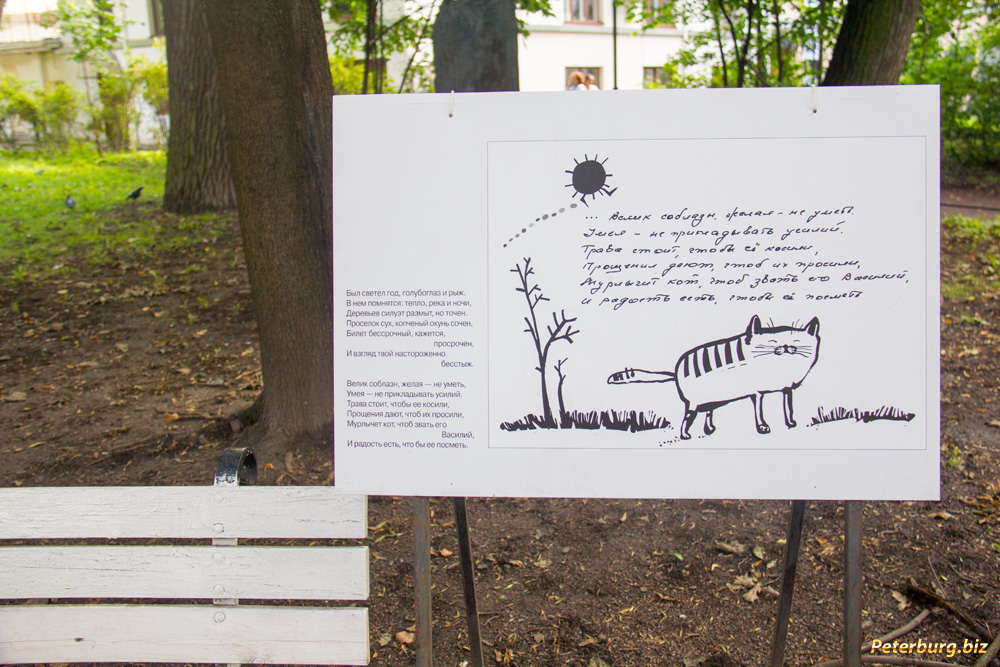 Был светел год, голубоглаз и рыж.
В нем помнятся: тепло, река и ночи,
Деревьев силуэт размыт, но точен.
Проселок сух, копченый окунь сочен,
Билет бессрочный, кажется,
просрочен,
И взгляд твой настороженно
бесстыж.
Велик соблазн, желая — не уметь,
Умея — не прикладывать усилий.
Трава стоит, чтобы ее косили,
Прощения дают, чтоб их просили,
Мурлычет кот, чтоб звать его
Василий,
И радость есть, что бы ее посметь.
... Велик соблазн, желая - не уметь.
Умея - не прикладывать усилий.
Трава стоит, чтобы её косили,
Прощения дают, чтоб их просили,
Мурлычит кот, чтоб звать его Василий,
и радость есть, чтобы её посметь
Peterburg.biz